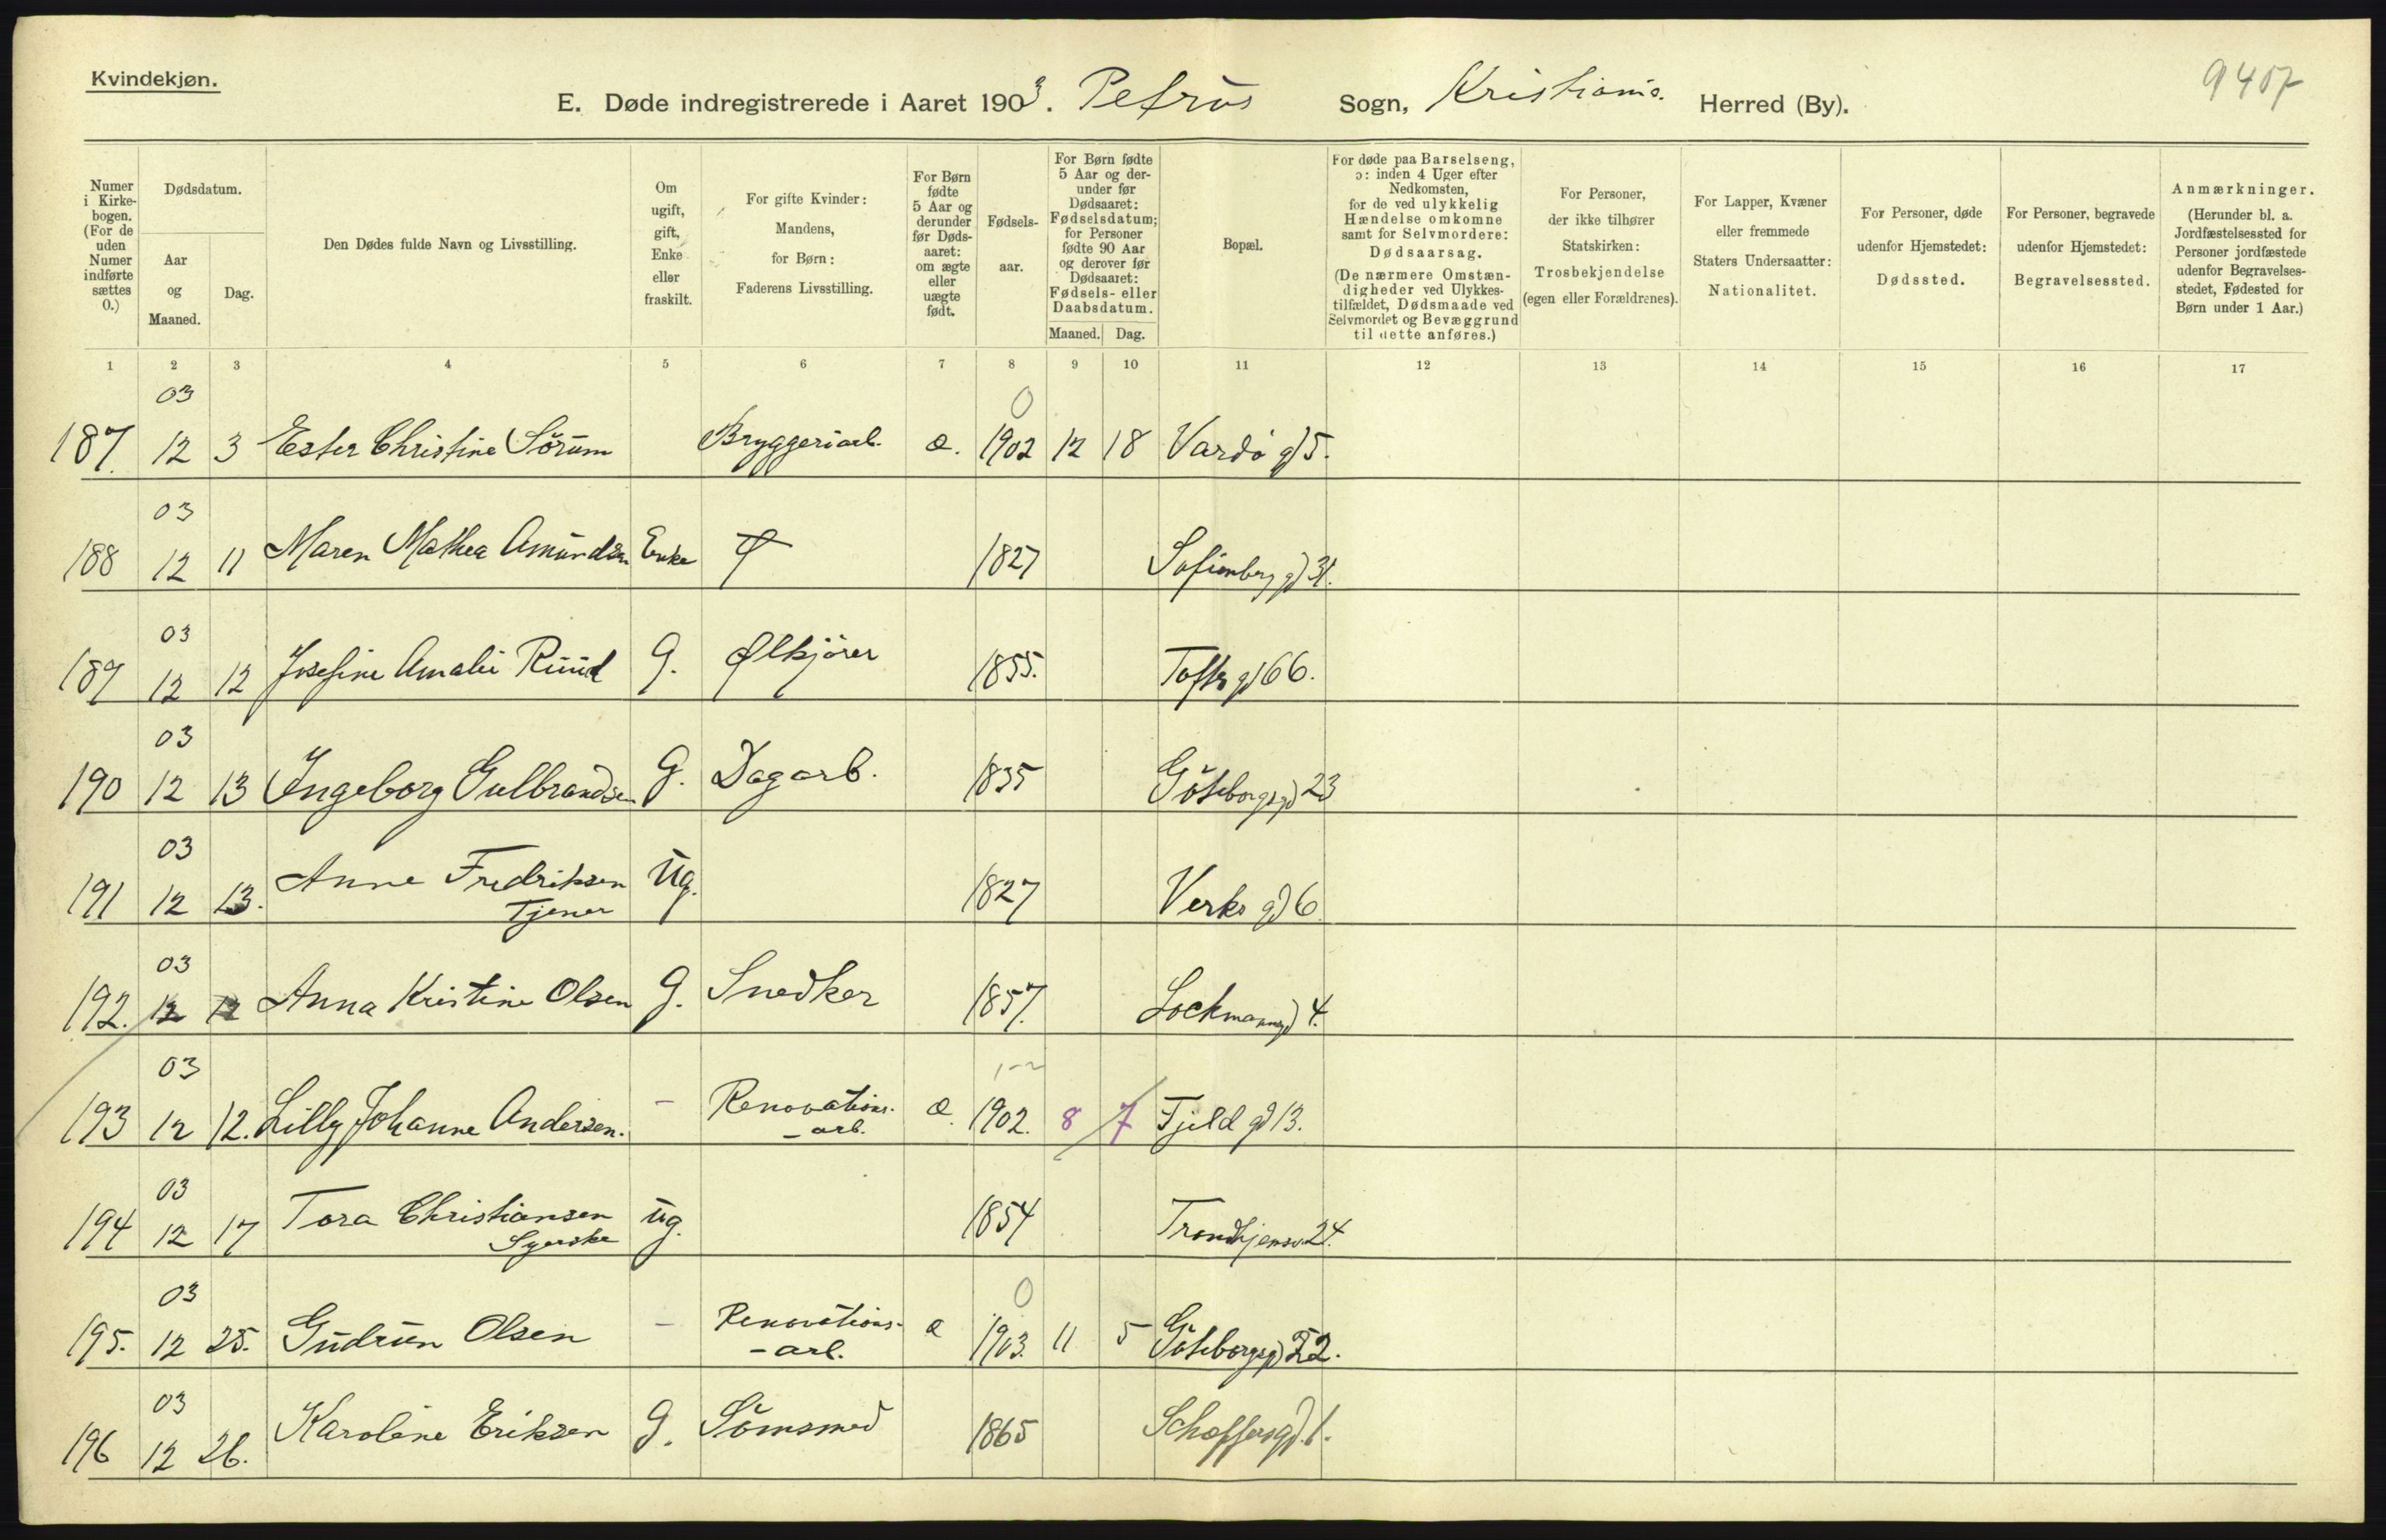 Kvindekjøn.
9407
E. Døde indregistrerede i Aaret 1903. Petrus Sogn, Kristiania. Herred (By).
Numer i Kirkebogen. (For de uden Numer indførte sættes 0.)
Dødsdatum.
Aar og Maaned.
Dag.
Den Dødes fulde Navn og Livsstilling.
Om ugift, gift, Enke eller fraskilt.
For gifte Kvinder: Mandens, for Børn: Faderens Livsstilling.
For Børn fødte 5 Aar og derunder før Dødsaaret: om ægte eller uægte født.
Fødselsaar.
For Børn fødte 5 Aar og derunder før Dødsaaret: Fødselsdatum; for Personer fødte 90 Aar og derover før Dødsaaret: Fødsels- eller Daabsdatum.
Maaned. Dag.
Bopæl.
For døde paa Barselseng, ɔ: inden 4 Uger efter Nedkomsten, for de ved ulykkelig Hændelse omkomne samt for Selvmordere: Dødsaarsag. (De nærmere Omstændigheder ved Ulykkestilfældet, Dødsmaade ved Selvmordet og Bevæggrund til dette anføres.)
For Personer, der ikke tilhører Statskirken: Trosbekjendelse (egen eller Forældrenes).
For Lapper, Kvæner eller fremmede Staters Undersaatter: Nationalitet.
For Personer, døde udenfor Hjemstedet: Dødssted.
For Personer, begravede udenfor Hjemstedet: Begravelsessted.
Anmærkninger. (Herunder bl. a. Jordfæstelsessted for Personer jordfæstede udenfor Begravelsesstedet, Fødested for Børn under 1 Aar.)
1 2 3 4 5 6 7 8 9 10 11 12 13 14 15 16 17
03 0
187. 12 3 Ester Christine Sörum Bryggeriarb. æ. 1902 12 18 Vardö gd 5.
03
188 12 11 Maren Mathea Amundsen Enke 1827 Sofienberg gd 31.
03
189 12 12 Josefine Amalie Ruud G. Ølkjörer 1855. Toftes gd 66.
03
190 12 13 Ingeborg Gulbrandsen G. Dagarb. 1835 Göteborgsgd 23
03
191 12 13. Anne Fredriksen Ug. 1827 Verks gd 6
Tjener
03
192. 12 12 Anna Kristine Olsen G. Snedker 1857. Lockmannsgd 4.
03 1-2
193 12 12. Lilly Johanne Andersen. - Renovations- æ. 1902. 8 7 Fjeld gd 13.
-arb.
03
194 12 17 Tora Christiansen ug. 1854 Trondhjemsv. 24.
Syerske
03 0
195. 12 25. Gudrun Olsen - Renovations- æ 1903. 11 5 Göteborgsgd 22.
-arb.
03
196 12 26. Karoline Eriksen G. Sömsmed 1865 Schoffersgd. 1.